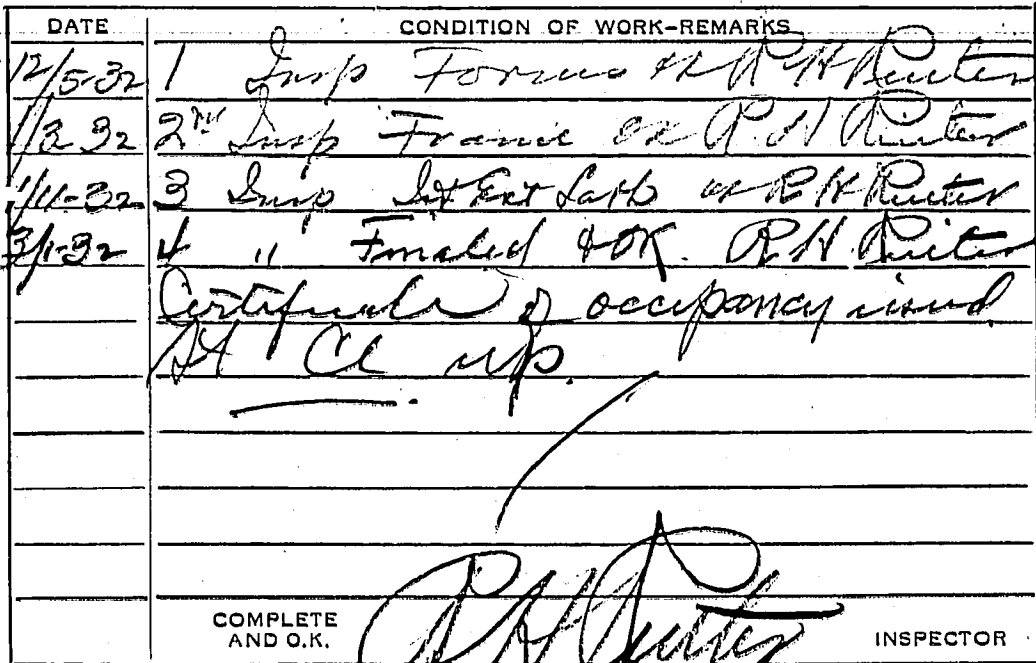 DATE CONDITION OF WORK-REMARKS
12/5-32 1 Insp Forms ok R H Ruiter
1/3 32 2nd Insp Frame ok R H Ruiter
1/11-32 3 Insp Int Ext Lath ok R H Ruiter
3/1-32 4 " Finaled & OK. R H Ruiter
Certificate of occupancy issued
St Cl up.
COMPLETE
AND O.K. R H Ruiter INSPECTOR